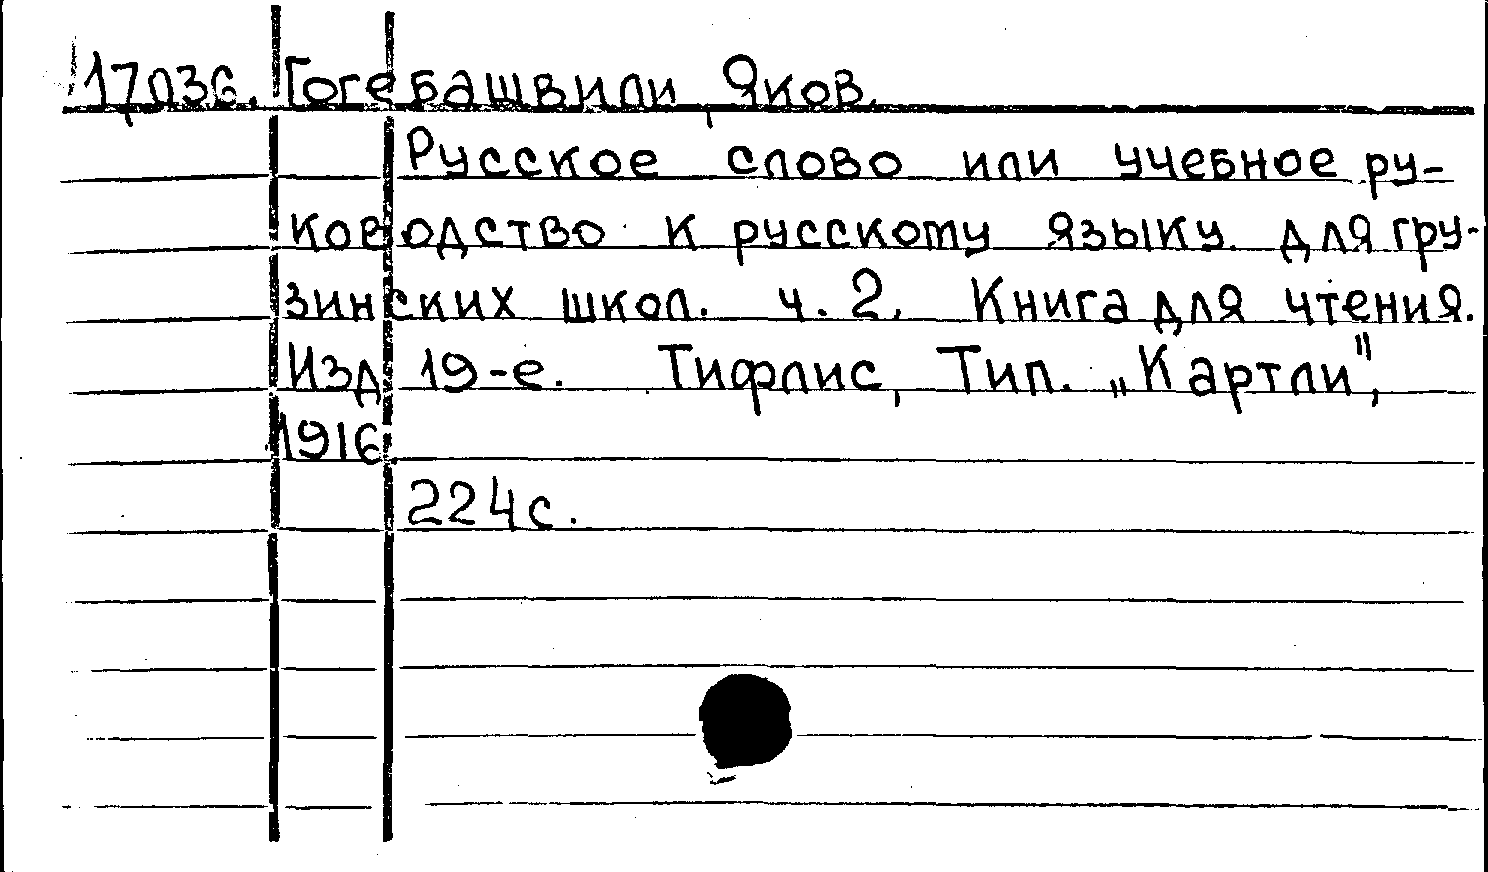 17036. Гогебашвили, Яков.
Русское слово или учебное ру-
ководство к русскому языку для гру-
зинских школ. ч. 2. Книга для чтения.
Изд 19-е. Тифлис, Тип. „Картли",
1916.
224с.